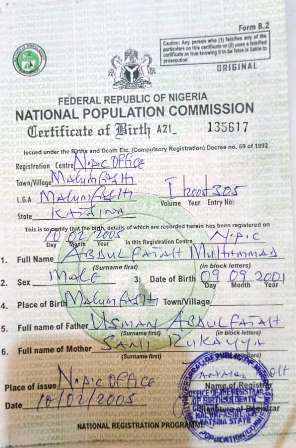 Form B.2
Caution: Any person who (1) falsifies any of the particulars on this certificate or (2) uses a falsified certificate as true knowing it to be false is liable to prosecution
ORIGINAL
FEDERAL REPUBLIC OF NIGERIA
NATIONAL POPULATION COMMISSION
Certificate of Birth A21 135617
Issued under the Births and Deaths Etc. (Compulsory Registration) Decree no. 69 of 1992
Registration Centre N.p.c OFFICE
Town/Village MALUMFASHI
L.G.A MALUMFASHI
Volume Year Entry No:
State KATSINA
This is to certify that the birth, details of which are recorded herein has been registered on
10/02/2005 in this Registration Centre N.P.C
Day Month Year
1. Full Name ABDULFATAH MUHAMMAD
(Surname first) (in block letters)
2. Sex MALE 3. Date of Birth 09 09 2001
Day Month Year
4. Place of Birth MALUMFASHI Town/Village.
5. Full name of Father USMAN ABDULFATAH
(Surname first) (in block letters)
6. Full name of Mother SANI RUKAYYA
(Surname first) (in block letters)
Place of issue N.p.c OFFICE
Name of Registrar
Date 10/02/2005
Signature of Registrar
KATSINA STATE
NATIONAL REGISTRATION PROGRAMME